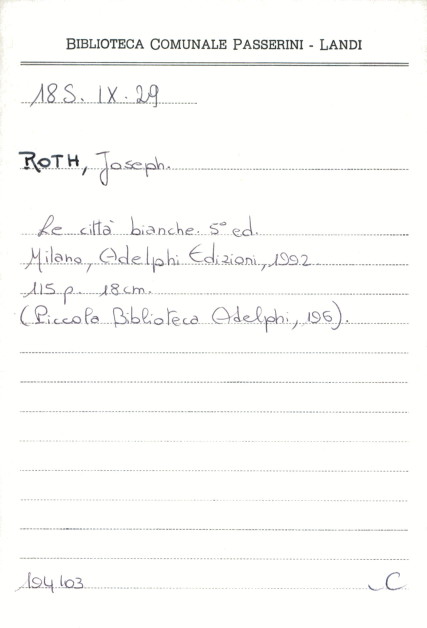 BIBLIOTECA COMUNALE PASSERINI - LANDI
18S. IX. 29
ROTH, Joseph.
Le città bianche. 5° ed.
Milano, Adelphi Edizioni, 1992
115 p. 18 cm.
(Piccola Biblioteca Adelphi, 195).
194103
C